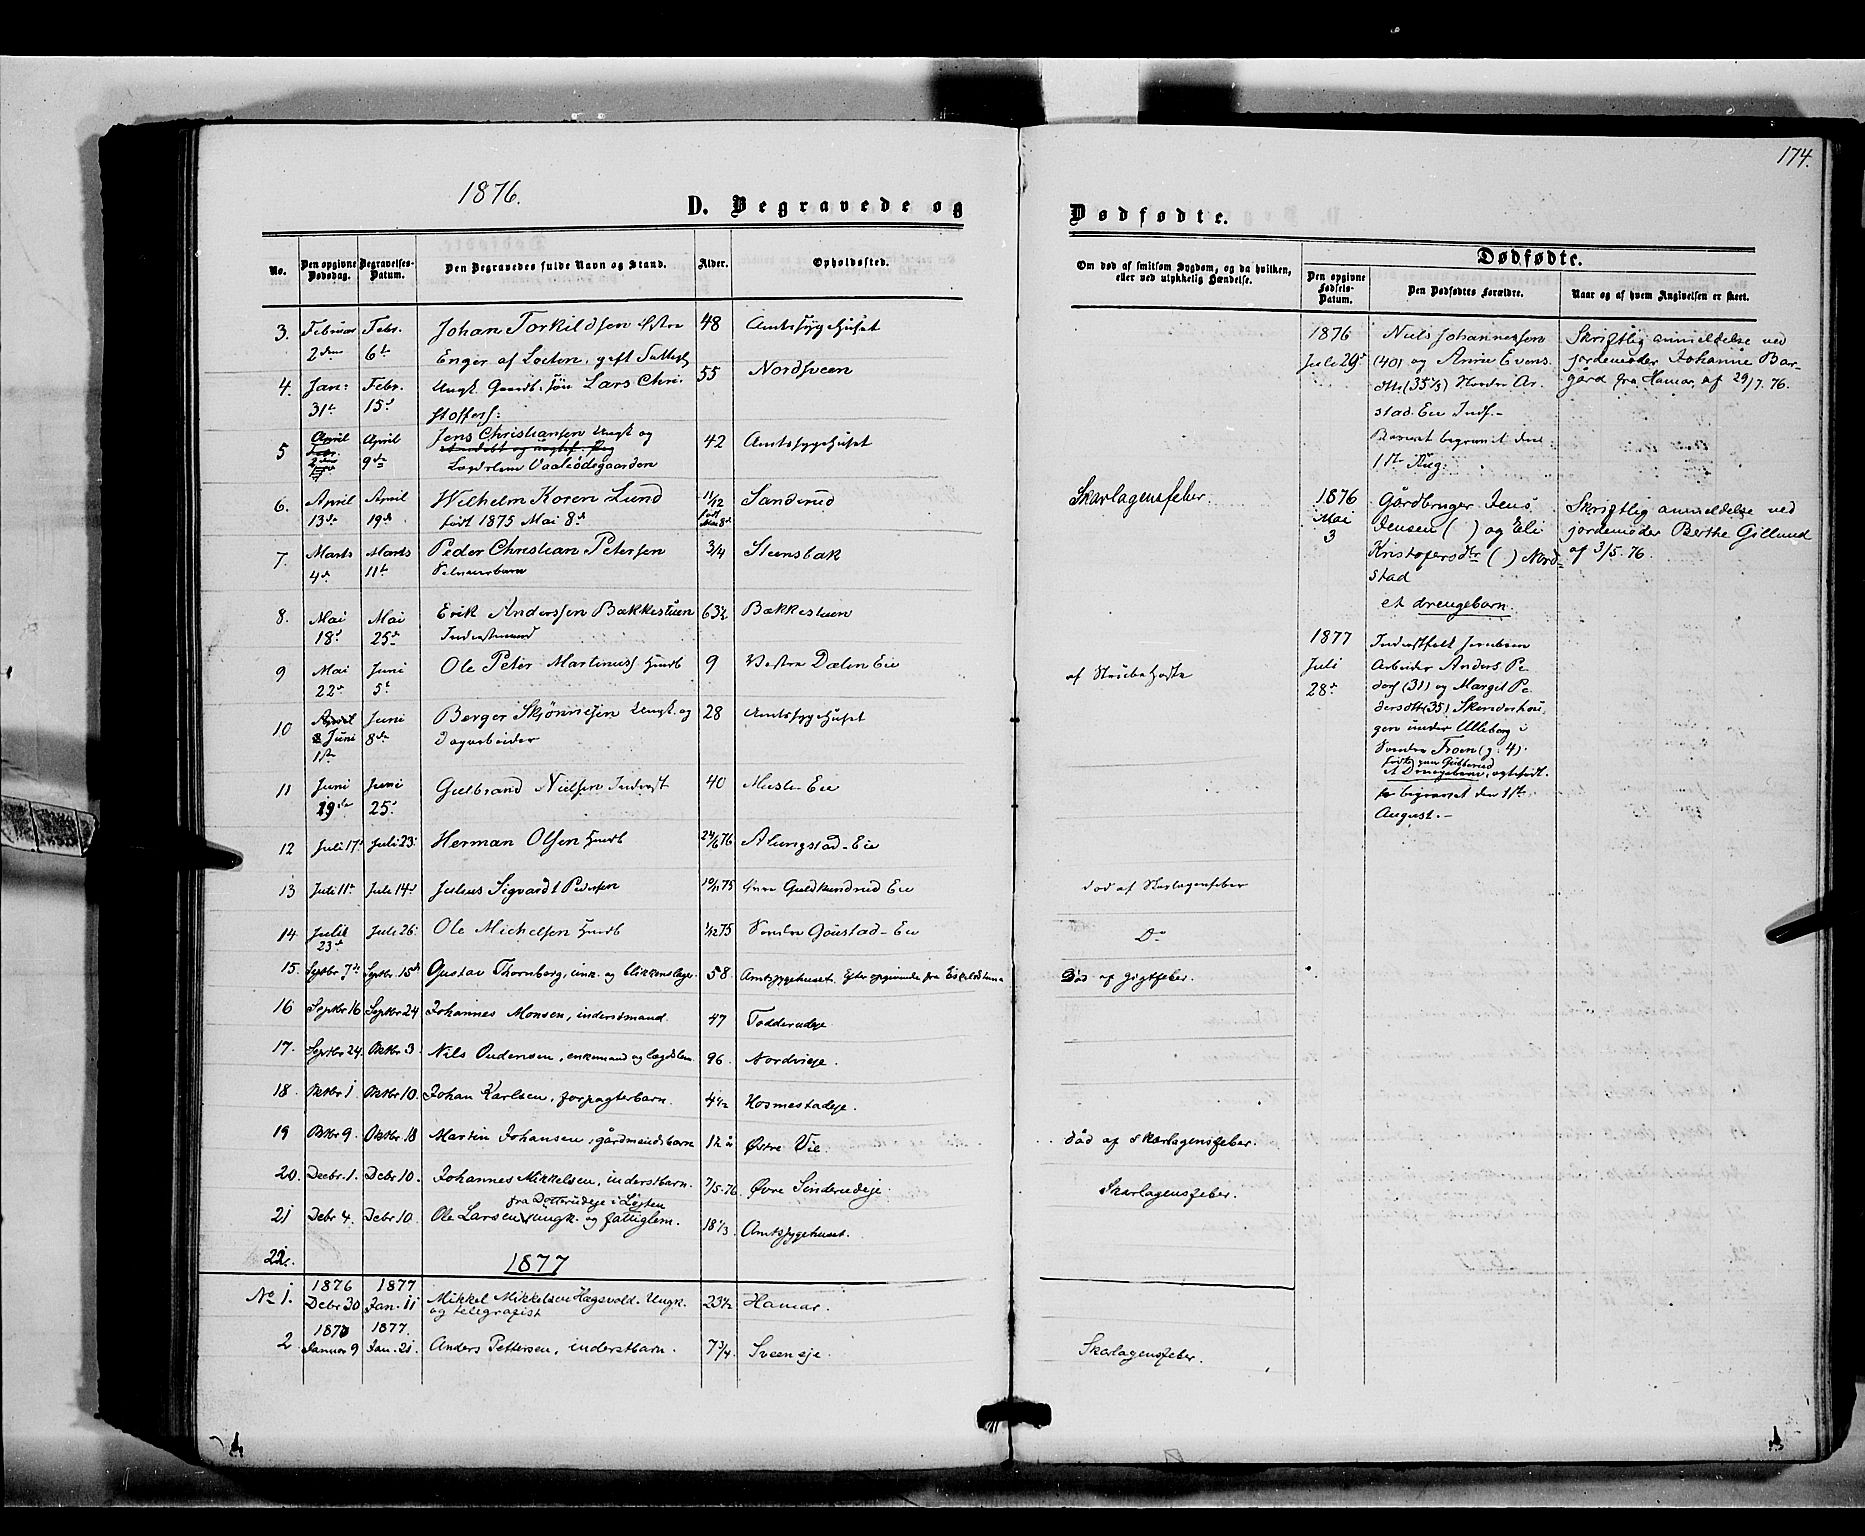 174.
1876.
D. Begravede og
Dødfødte.
No.
Den opgivne Dødsdag.
Begravelses-Datum.
Den Begravedes fulde Navn og Stand.
Alder.
Opholdssted.
Om død af smitsom Sygdom, og da hvilken,
eller ved ulykkelig Hændelse.
Dødfødte.
Den opgivne Fødsels-Datum.
Den Dødfødtes Forældre.
Naar og af hvem Angivelsen er skeet.
3. Februar Febr. Johan Torkildsen Østre 48 Amtssygehuset
2den 6te Enger af Løeten, gift
4. Jan: Febr. Ungk. Gaardb. søn Lars Chri- 55 Nordsveen
31te 15d stoffers:
5 April April Jens Christiansen Ungk og 42 Amtssygehuset
9de
Lægdslem Vaaleødegaarden
6. April April Wilhelm Koren Lund 11/12 Sanderud
13de 19de født 1875 Mai 8d født Mai 8d
7. Marts Marts Peder Christian Petersen 3/4 Steensbak
4d 11te
8. Mai Mai Erik Anderssen Bakkestuen 63½ Bækkestuen
18d 25de Inderstmand
9 Mai Juni Ole Peter Martinuss Huusb 9 Vestre Dælen Eie
22de 5te
10 April Juni Berger Skjønnesen Ungk. og 28 Amtssygehuset
Juni 8de Dagarbeider
1ste
11 Juni Juni Gulbrand Nielsen Inderst 40 Musle Eie
19de 25d
12 Juli 17d Juli 23d Herman Olsen Huusb 24/6 76 Alungstad-Eie
13 Juli 11te Juli 14d Julius Sigvardt Pedersen 10/11 75 Guldkundrud Eie
14 Juli Juli 26 Ole Michelsen Huusb 1/12 75 Søndre Goustad-Eie
23d
15. Septbr 7de Septbr. 15de Gustav Thornberg, enk. og blikkenslager 58. Amtssygehuset. Efter opgivende fra Eskilstuna
16 Septbr 16 Septbr 24 Johannes Monsen, inderstmand. 47 Todderudeje
17. Septbr 24. Oktbr 3 Nils Pedersen, enkemand og lægdslem. 96. Nordvieje.
18 Oktbr 1 Oktbr 10. Johan Karlsen, forpagterbarn. 4½ Hosmestadeje.
19 Oktbr 9. Oktbr 18 Martin Johansen, gårdmandsbarn 12 år Østre Vie.
20. Decbr. 1. Debr 10. Johannes Mikkelsen, inderstbarn. 7/5-76. Øvre Sinderudeje.
fra Dotterudeje i Løjten
21 Debr 4. Debr 10 Ole Larsen ungk. og fattiglem. 18 1/3. Amtssygehuset.
22. 1877
1876 1877
No 1. Debr 30 Jan. 11 Mikkel Mikkelsen Hagsvold. Ungk. 23½ Hamar.
og telegrafist
1877 1877.
2 Januar 9 Jan. 21. Anders Pettersen, inderstbarn. 7 3/4. Sveenseje.
Skarlagensfeber.
af Strubehoste
død af Skarlagensfeber
Do
Død af gigtfeber.
død af skarlagensfeber.
Skarlagensfeber.
Skarlagensfeber.
1876 Niels Johannessen Skriftlig anmeldelse ved
Juli 29d (40) og Anne Evens- jordemoder Johanne Bar-
dtt. (35½) Nordre Ar- gård fra Hamar af 29/7. 76.
stad. Eie Inds.-
Barnet begravet den
1ste Aug:
1876 Gårdbruger Jens Skriftlig anmeldelse ved
Mai Jensen ( ) og Eli jordemoder Berthe Gillund
3 Kristofersdtr ( ) Nord- af 3/5. 76.
stad
et drengebarn.
1877 Inderstfolk
Juli Arbeider Anders Pe-
28de ders (31) og Marget Pe-
dersdtt (35) Skenderhau-
gen under Ulleborg i
Søndre Troen (g: 4).
et Drengebarn, ægtefødt.
begravet den 1ste
August.-